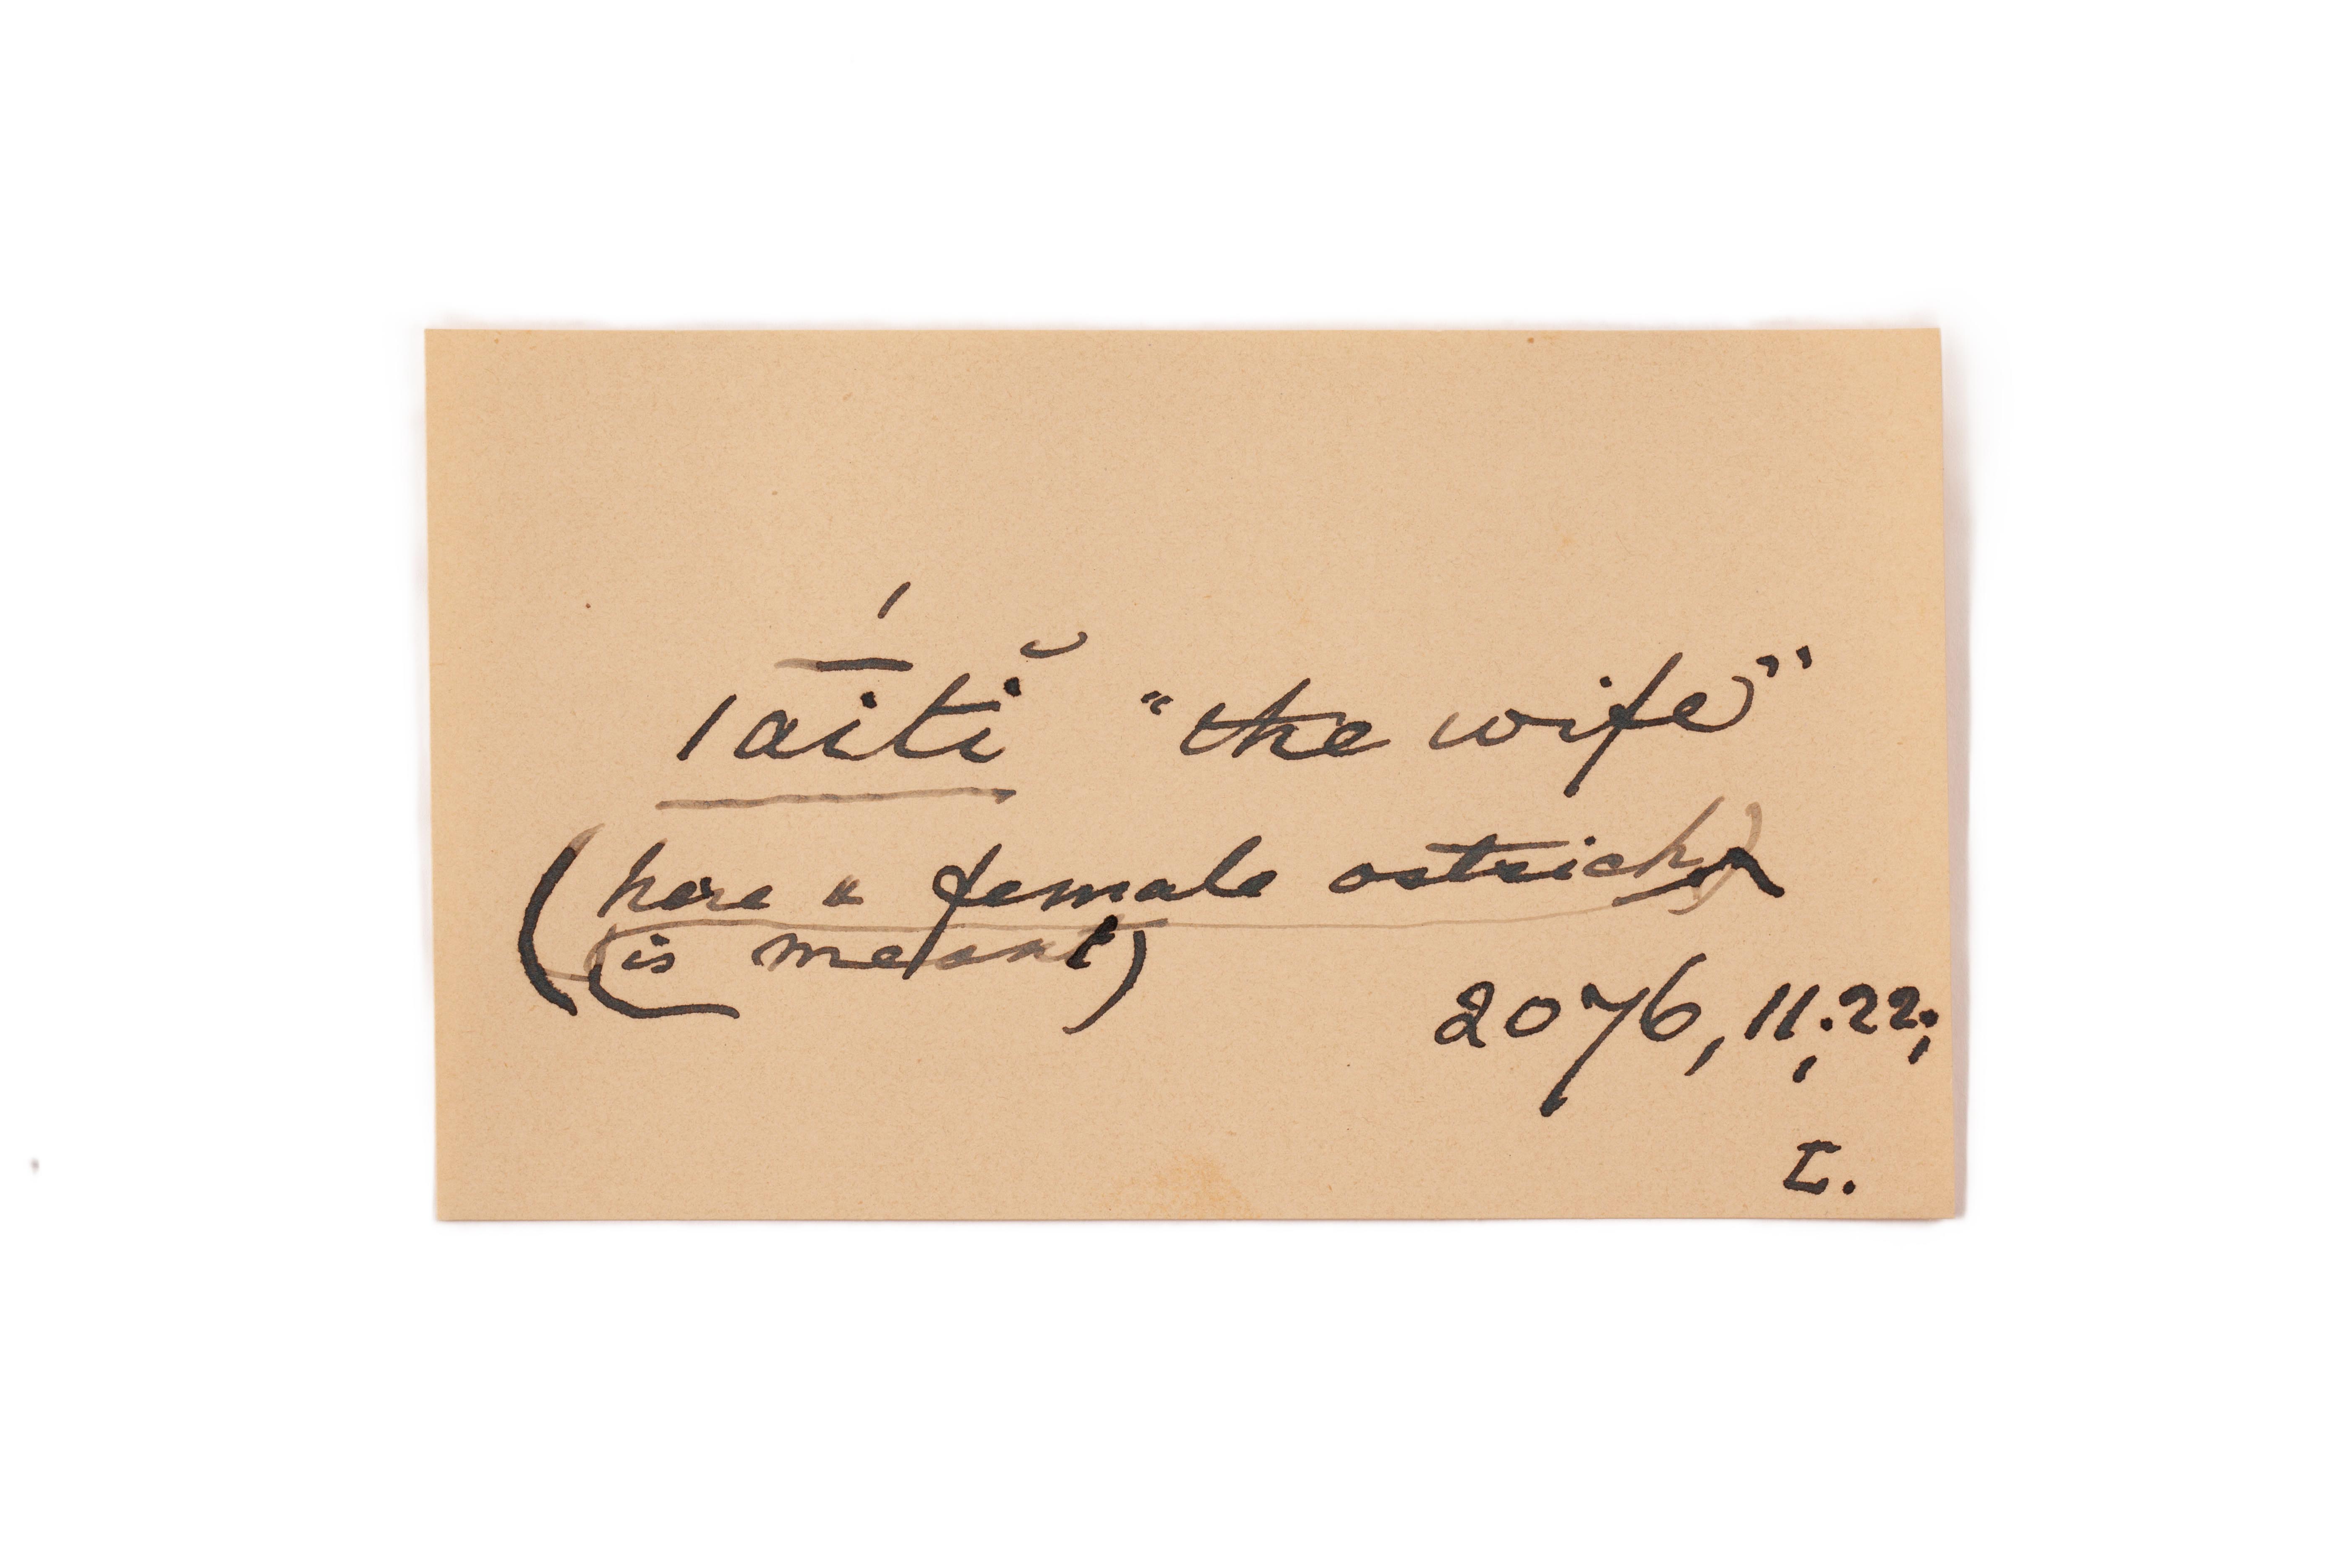 ǀā́itĭ "the wife"
(here a female ostrich
is meant)
2076, 11.22;
L.